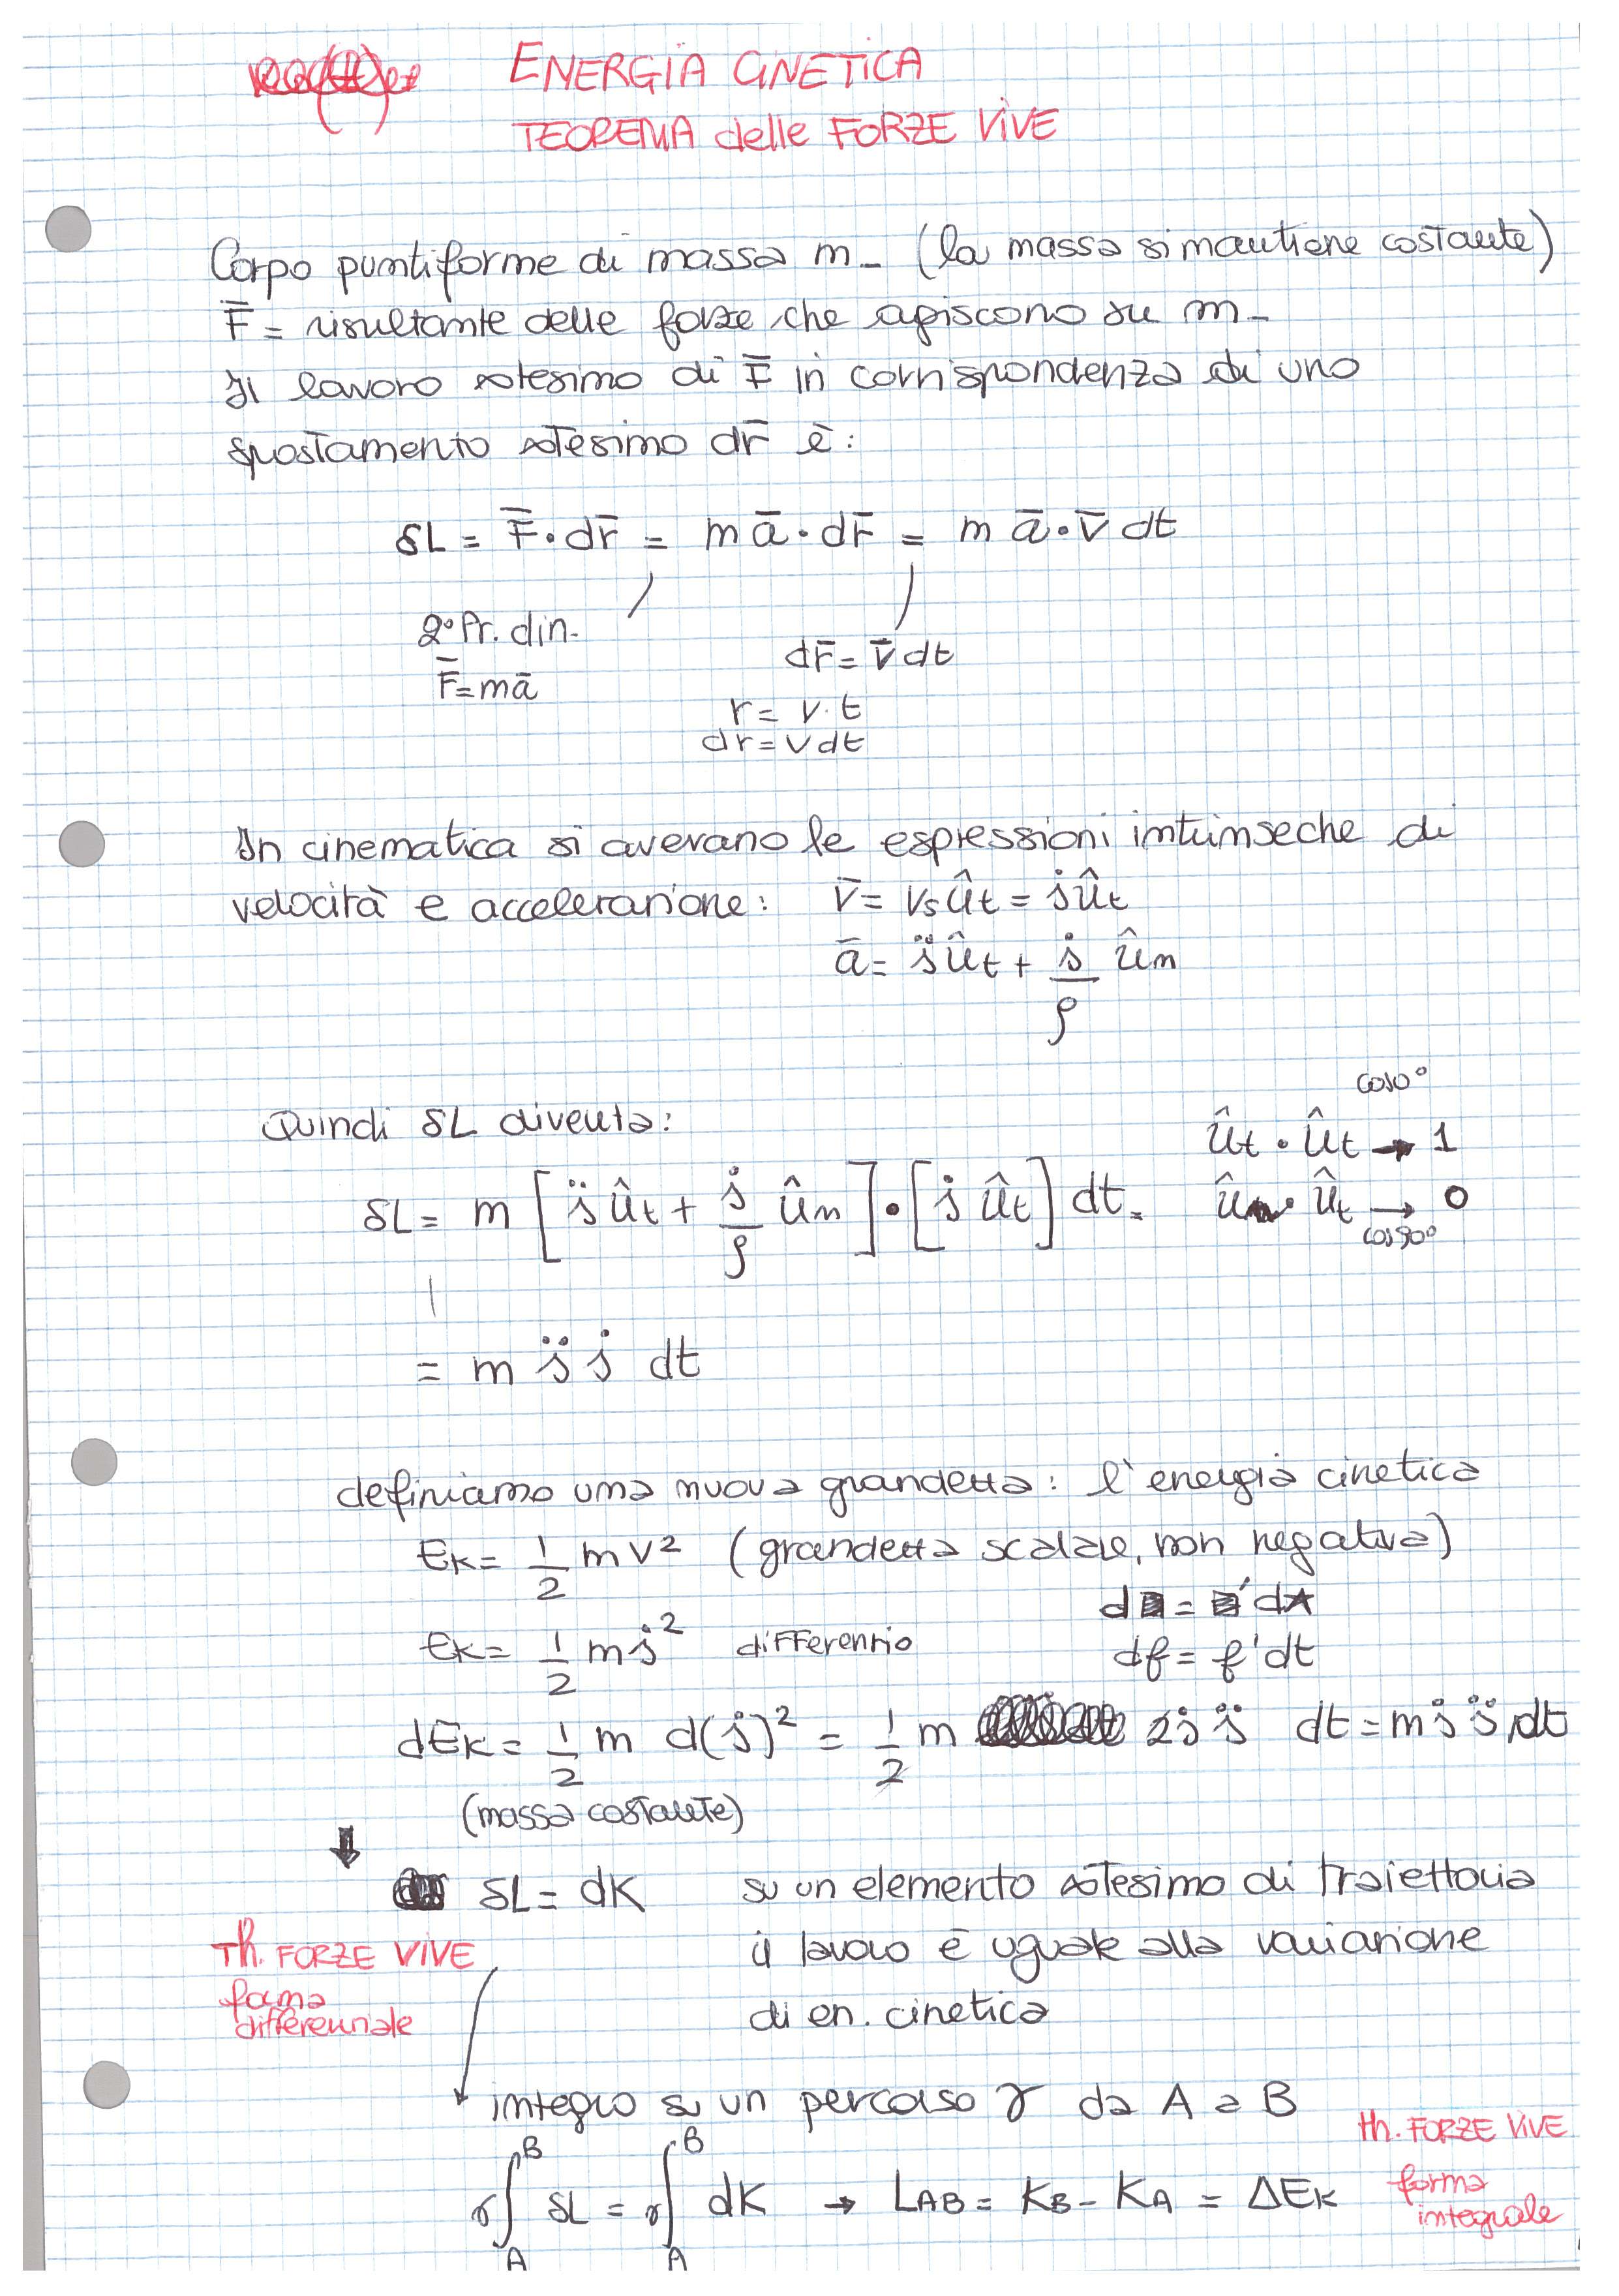 ENERGIA CINETICA
TEOREMA delle FORZE VIVE
Corpo puntiforme di massa m_ (la massa si mantiene costante)
F̄ = risultante delle forze che agiscono su m_
Il lavoro ∞tesimo di F̄ in corrispondenza di uno
spostamento ∞tesimo dr̄ è:
δL = F̄ · dr̄ = m ā · dr̄ = m ā · v̄ dt
2° Pr. din.
F̄ = mā
dr̄ = v̄ dt
r = v · t
dr = v dt
In cinematica si avevano le espressioni intrinseche di
velocità e accelerazione: v̄ = vs ût = ṡ ût
ā = s̈ ût + ṡ/ρ ûn
cos0°
Quindi δL diventa: ût · ût → 1
δL = m [s̈ ût + ṡ/ρ ûn] · [ṡ ût] dt = ûn · ût → 0
cos90°
= m s̈ ṡ dt
definiamo una nuova grandezza: l'energia cinetica
EK = 1/2 m v² (grandezza scalare, non negativa)
EK = 1/2 m ṡ² differenzio df = f' dt
dEK = 1/2 m d(ṡ)² = 1/2 m 2 ṡ s̈ dt = m ṡ s̈ dt
(massa costante)
⇓
δL = dK su un elemento ∞tesimo di traiettoria
Th. FORZE VIVE il lavoro è uguale alla variazione
forma differenziale di en. cinetica
integro su un percorso γ da A a B
γ∫_A^B δL = γ∫_A^B dK → LAB = KB - KA = ΔEK
th. FORZE VIVE
forma
integrale